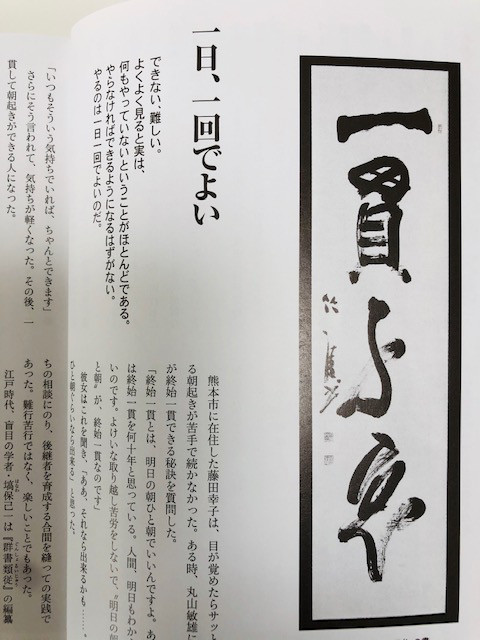 一日、一回でよい
できない、難しい。
よくよく見ると実は、
何もやっていないということがほとんどである。
やらなければできるようになるはずがない。
やるのは一日一回でよいのだ。
熊本市に在住した藤田幸子は、目が覚めたらサッと
る朝起きが苦手で続かなかった。ある時、丸山敏雄に
が終始一貫できる秘訣を質問した。
「終始一貫とは、明日の朝ひと朝でいいんですよ。あ
は終始一貫を何十年と思っている。人間、明日もわか
いのです。よけいな取り越し苦労をしないで、〝明日の朝
と朝〟が、終始一貫なのです」
彼女はこれを聞き、「ああ、それなら出来るかも……。
ひと朝ぐらいなら出来る」と思った。
「いつもそういう気持ちでいれば、ちゃんとできます」
さらにそう言われて、気持ちが軽くなった。その後、一
貫して朝起きができる人になった。
ちの相談にのり、後継者を育成する合間を縫っての実践で
あった。難行苦行ではなく、楽しいことでもあった。
江戸時代、盲目の学者・塙保己一は『群書類従』の編纂
はなわ
ほきいち
ぐんしょるいじゅう